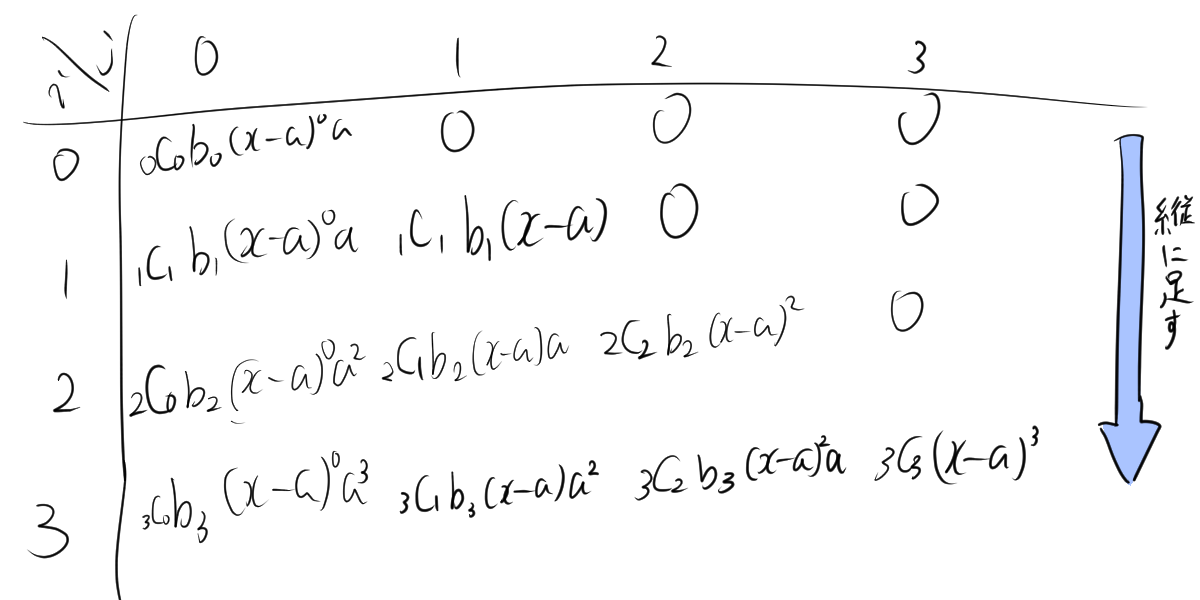 i\j 0 1 2 3
0 ₀C₀b₀(x-a)⁰a 0 0 0
1 ₁C₁b₁(x-a)⁰a ₁C₁b₁(x-a) 0 0
2 ₂C₀b₂(x-a)⁰a² ₂C₁b₂(x-a)a ₂C₂b₂(x-a)² 0
3 ₃C₀b₃(x-a)⁰a³ ₃C₁b₃(x-a)a² ₃C₂b₃(x-a)²a ₃C₃(x-a)³
縦に足す